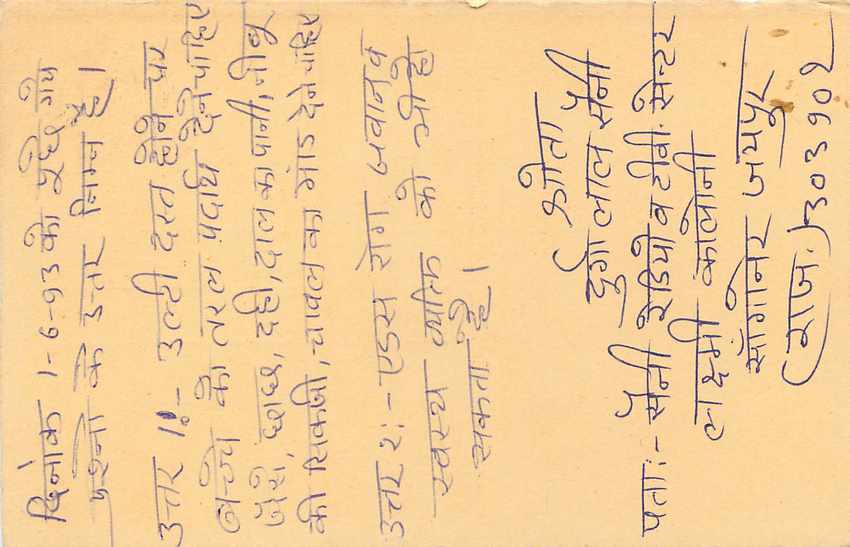 दिनांक 1-6-93 को पुछे गये
प्रश्नो के उत्तर निम्न है।
उत्तर 1:- उल्टी दस्त होने पर
बच्चे को तरल पदार्थ देने चाहिए
जैसे, छाछ, दही, दाल का पानी, नीबू
की सिकंजी, चावल का मांड देने चाहिए
उत्तर 2:- एड्स रोग जवान व
स्वस्थ्य व्यक्ति के
सकता है।
श्रोता
दुर्गा लाल सैनी
पता:- सैनी रेडियो व टीवी. सेन्टर
लक्ष्मी कालोनी
सांगानेर जयपुर
(राज.) 303902